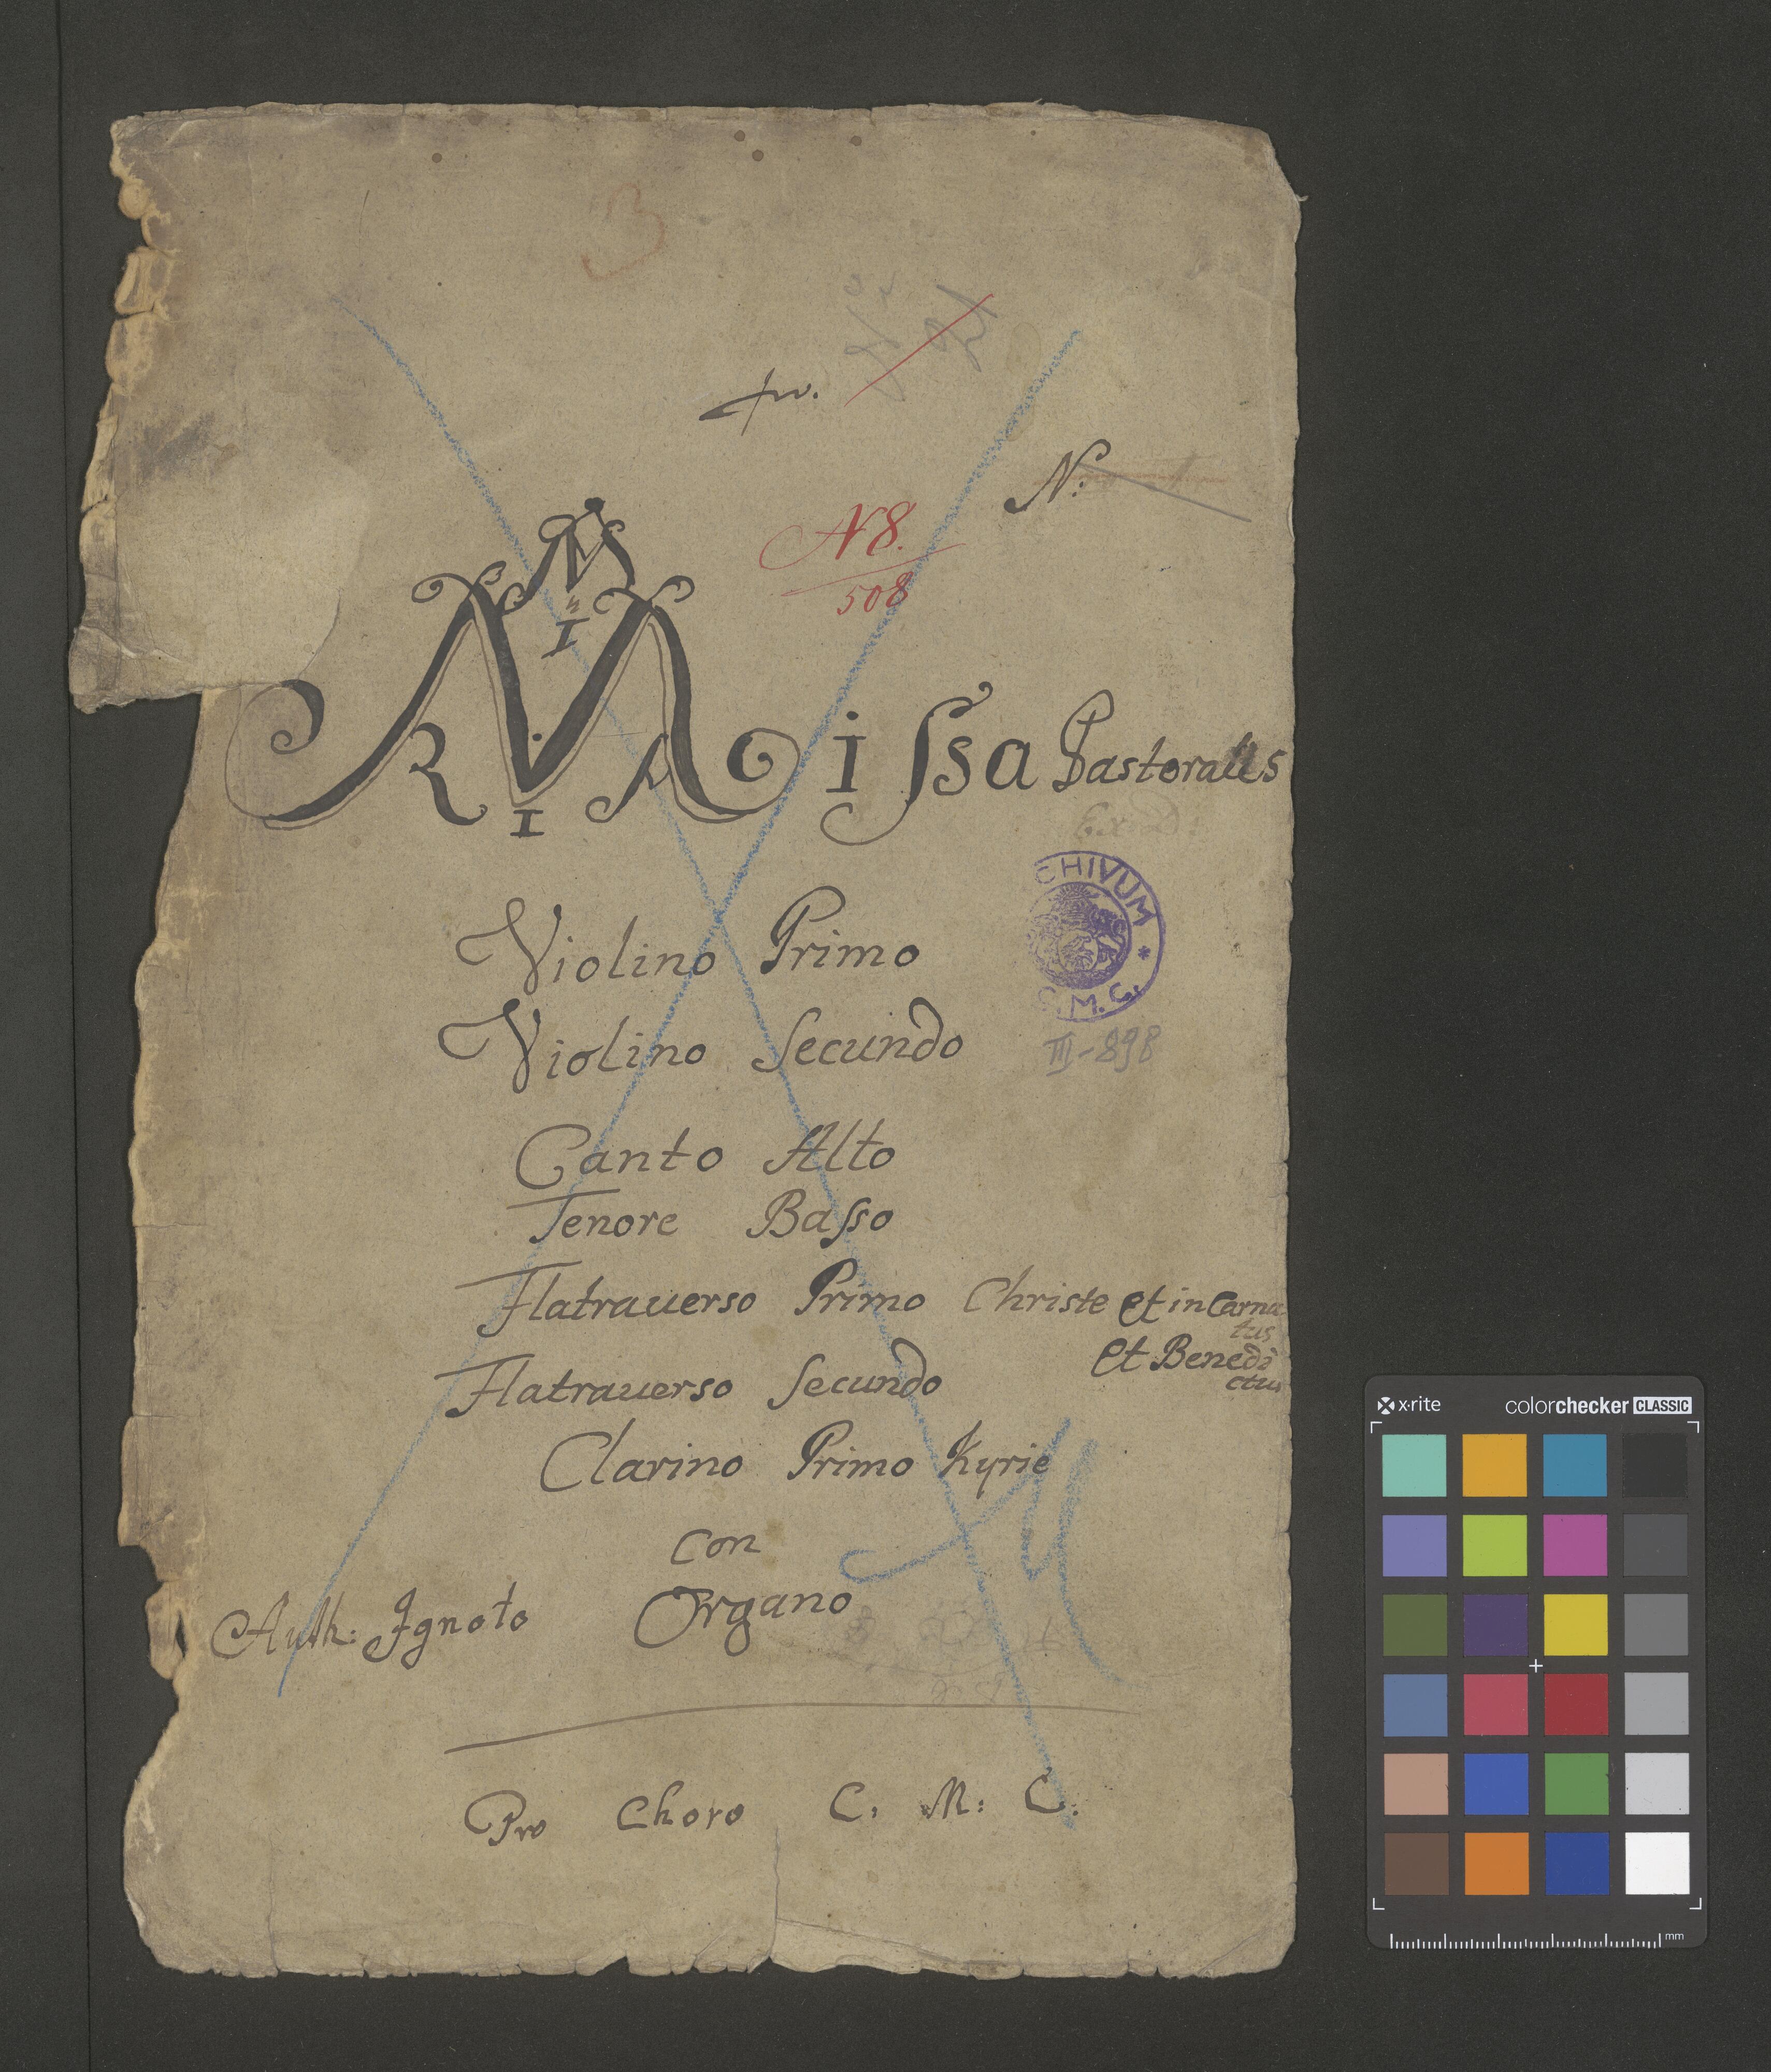 N:
N 8.
508
Missa Pastoralis
Violino Primo
ARCHIVUM * C.M.C.
Violino Secundo
III-898
Canto Alto
Tenore Basso
Flatrauerso Primo Christe et incarna
tus
Flatrauerso Secundo et Benedi
ctus
Clarino Primo Kyrie
con
Auth: Ignoto Organo
Pro Choro C. M: C:
x·rite colorchecker CLASSIC
mm